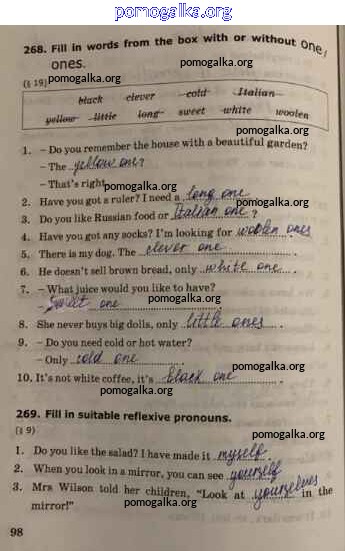 pomogalka.org
268. Fill in words from the box with or without one,
ones.
(§ 19) pomogalka.org
black clever cold Italian
pomogalka.org
yellow little long sweet white woolen
pomogalka.org
1. – Do you remember the house with a beautiful garden?
– The yellow one?
– That's right pomogalka.org
2. Have you got a ruler? I need a long one
pomogalka.org
3. Do you like Russian food or Italian one ?
4. Have you got any socks? I'm looking for woolen ones
pomogalka.org
5. There is my dog. The clever one.
6. He doesn't sell brown bread, only white one .
7. – What juice would you like to have?
pomogalka.org
– Sweet one
8. She never buys big dolls, only little ones .
9. – Do you need cold or hot water?
– Only cold one pomogalka.org
10. It's not white coffee, it's black one .
pomogalka.org
269. Fill in suitable reflexive pronouns.
(§ 9) pomogalka.org
1. Do you like the salad? I have made it myself.
2. When you look in a mirror, you can see yourself
pomogalka.org
3. Mrs Wilson told her children, "Look at yourselves in the
mirror!" pomogalka.org
98
pomogalka.org